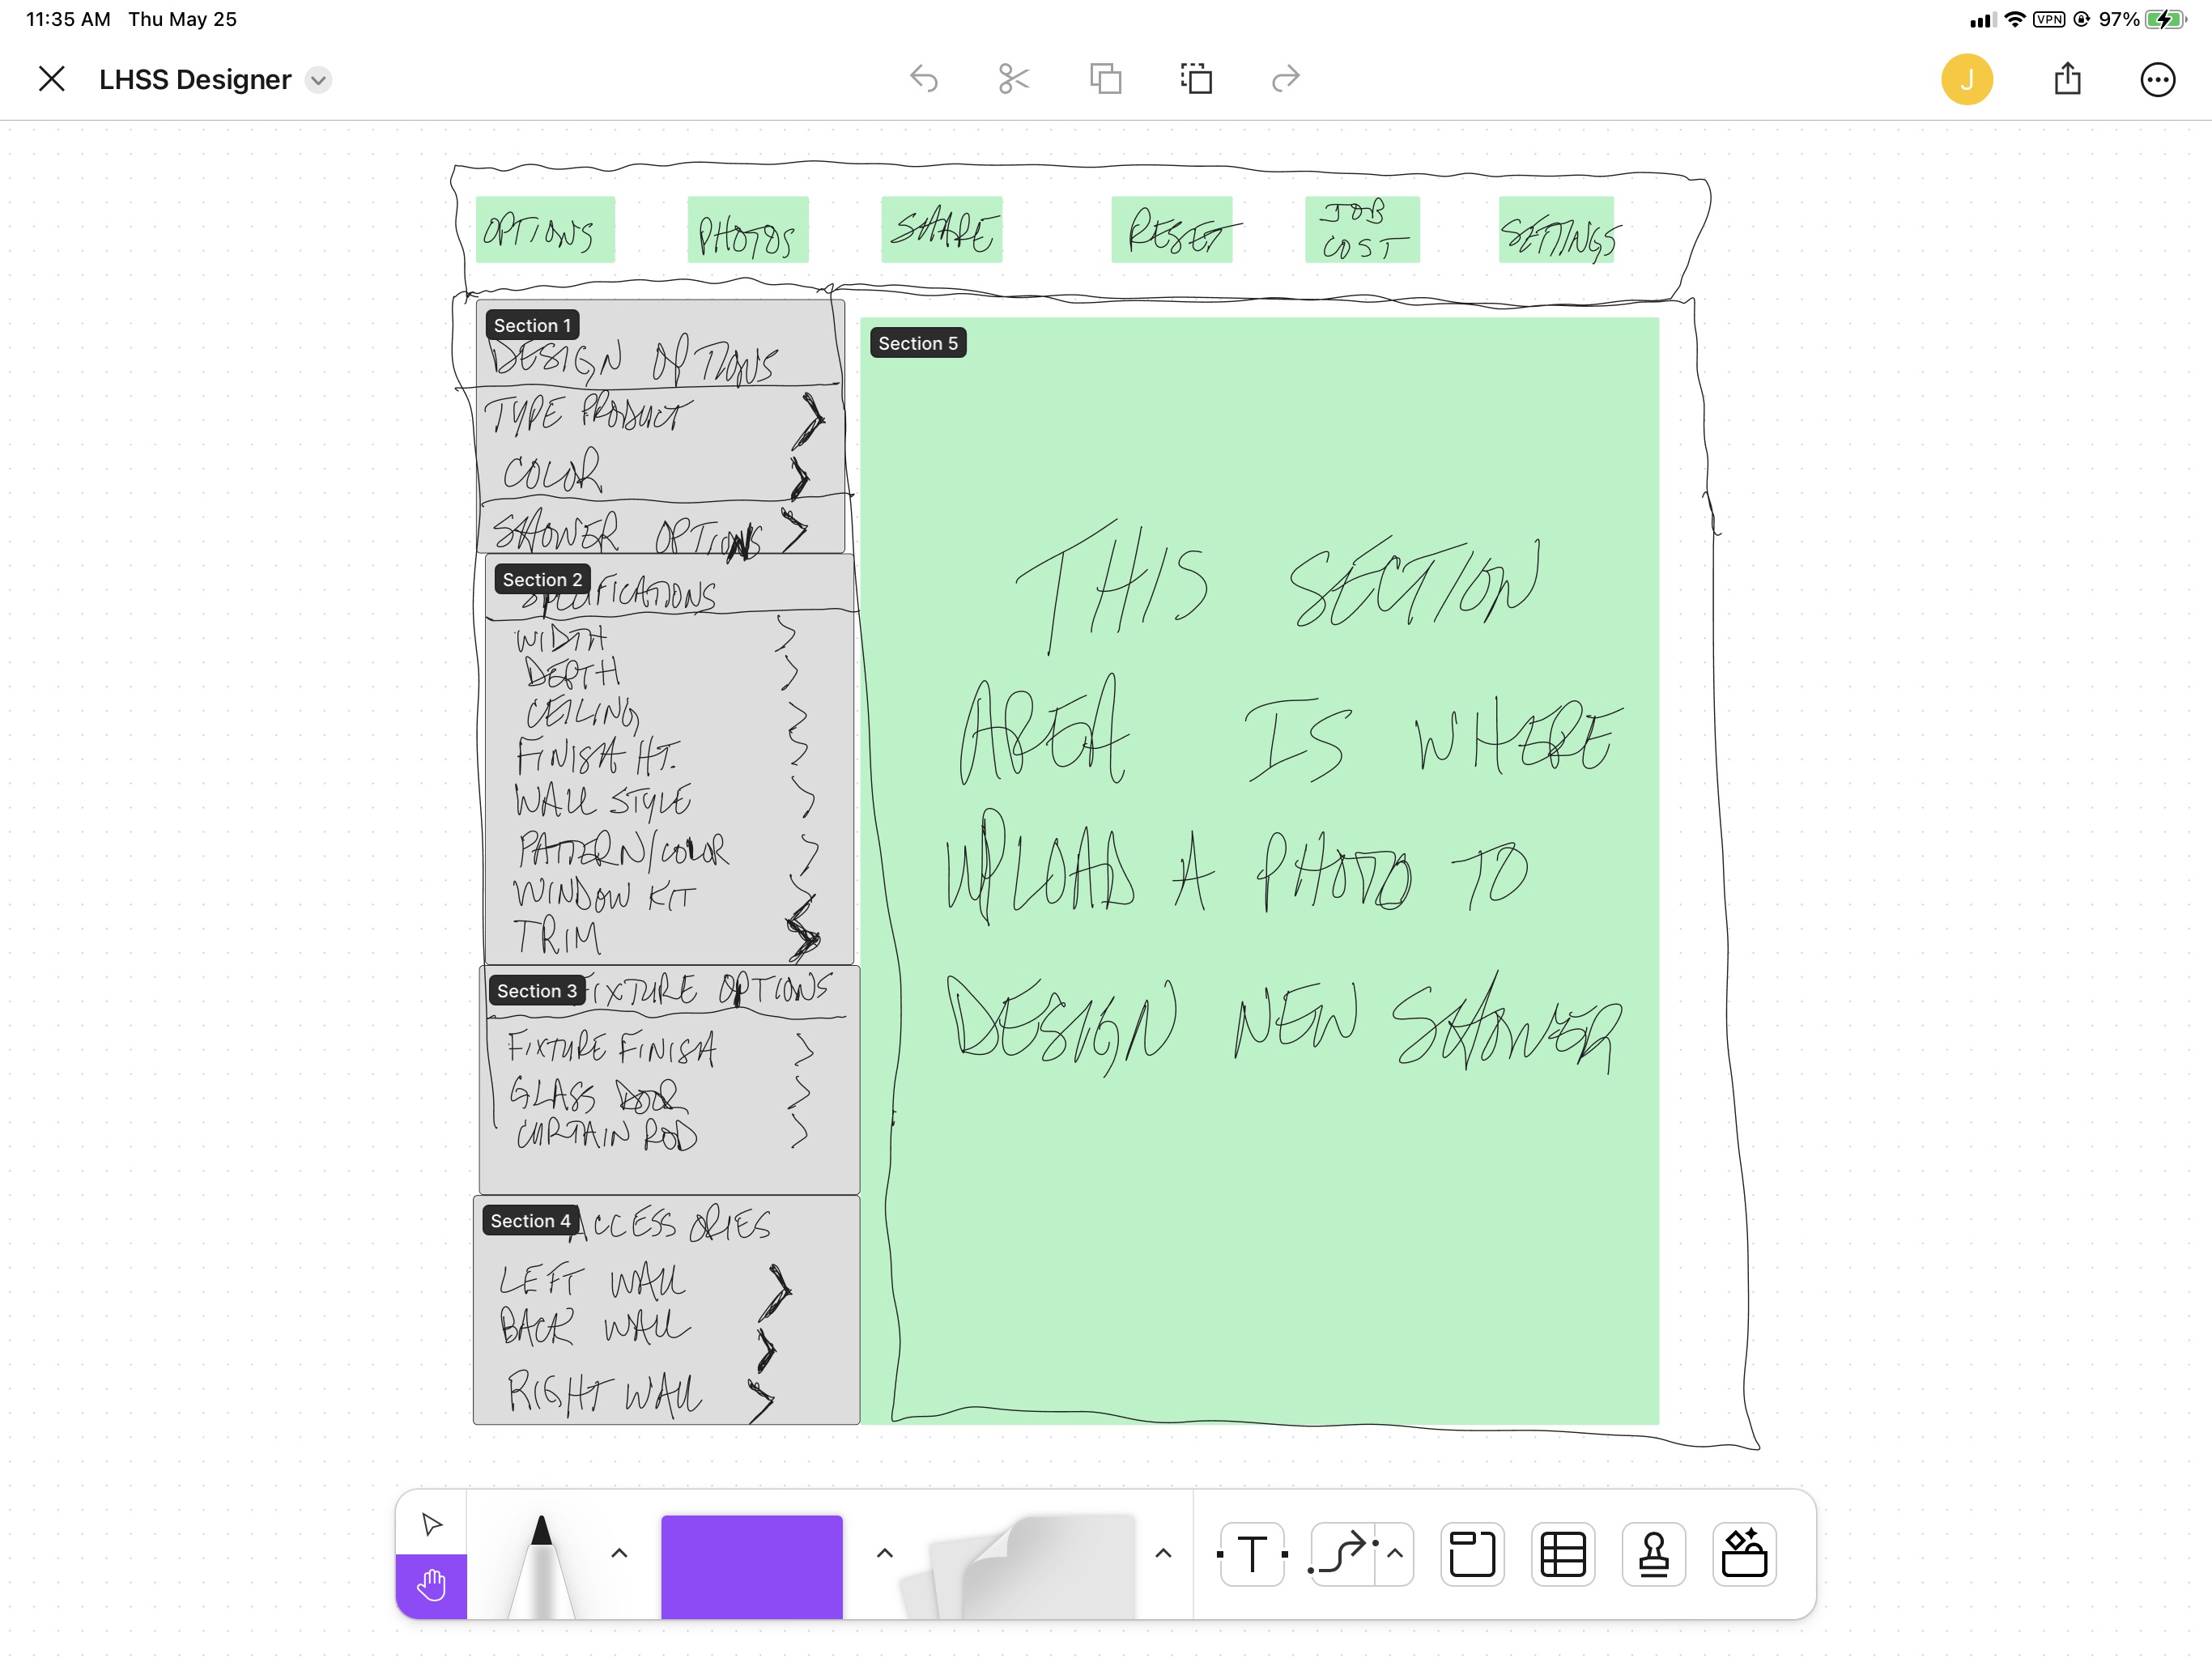 11:35 AM Thu May 25
VPN 97%
LHSS Designer
J
OPTIONS PHOTOS SHARE RESET JOB COST SETTINGS
Section 1
DESIGN OPTIONS
TYPE PRODUCT
COLOR
SHOWER OPTIONS
Section 2
SPECIFICATIONS
WIDTH
DEPTH
CEILING
FINISH HT.
WALL STYLE
PATTERN/COLOR
WINDOW KIT
TRIM
Section 3
FIXTURE OPTIONS
FIXTURE FINISH
GLASS DOOR
CURTAIN ROD
Section 4
ACCESSORIES
LEFT WALL
BACK WALL
RIGHT WALL
Section 5
THIS SECTION
AREA IS WHERE
UPLOAD A PHOTO TO
DESIGN NEW SHOWER
T